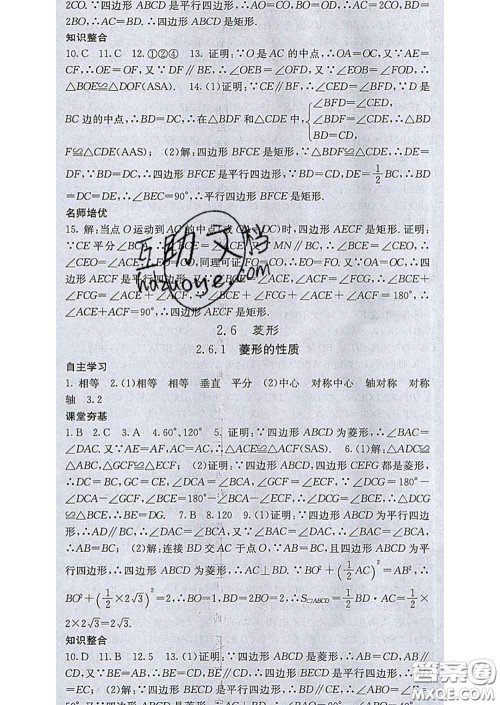 2CO. ∵四边形 ABCD 是平行四边形,∴AO=CO,BO=OD. ∴AC=2CO,BD=
2BO. ∴AC=BD. ∴四边形 ABCD 是矩形.
知识整合
10.C 11.C 12.①②④ 13.证明:∵O 是 AC 的中点,∴OA=OC,又∵AE=
CF,∴OE=OF,又∵DF∥BE,∴∠OEB=∠OFD,又∵∠EOB=∠FOD,∴
△BOE≌△DOF(ASA). 14.(1)证明:∵CE∥BF,∴∠CED=∠BFD,∵D 是
BC 边的中点,∴BD=DC,∴在△BDF 和△CDE 中,
∠BFD=∠CED,
∠BDF=∠CDE,∴△BD
BD=DC,
F≌△CDE(AAS); (2)解:四边形 BFCE 是矩形,∵△BDF≌△CDE,∴DE=
DF,∵BD=DC,∴四边形 BFCE 是平行四边形,∵∠BFD=∠CED,DE=1/2BC,∴BD=
DC=DE,∴∠BEC=90°,∴平行四边形 BFCE 是矩形.
名师培优
15.解:当点 O 运动到 AC 的中点(或 OA=OC)时,四边形 AECF 是矩形.证明:
∵CE 平分∠BCA,∴ MN∥BC,∴∠
CEO= ∴EO=CO.同理可证 FO=CO. ∴EO=FO. 又∵OA=OC,∴
四边形 AECF 是平行四边形.
+∠FCG=∠ACE+∠ACF,
∠ACE+ACF=90°,∴四边形 AECF 是矩形.
互助文档
hdzuoye.com
2.6 菱形
2.6.1 菱形的性质
自主学习
1.相等 2.(1)相等 相等 垂直 平分 (2)中心 对称中心 轴对称 对称
轴 3.2
课堂夯基
1.B 2.C 3.A 4.60°,120° 5.证明:∵四边形 ABCD 为菱形,∴∠BAC=
∠DAC. 又∵AE=AF,AC=AC,∴△ACE≌△ACF(SAS). 6.(1)解:△ADC≌
△ABC,△GCF≌△ECF; (2)证明:∵四边形 ABCD,四边形 CEFG 都是菱形,
∴DC=BC,GC=CE,∠DCA=∠BCA,∠GCF=∠ECF,∵∠DCG=180°-
∠DCA-∠GCF,∠BCE=180°-∠BCA-∠ECF,∴∠DCG=∠BCE,∴△DCG
≌△BCE,∴BE=DG. 7.B 8.120 9.(1)证明:∵四边形 ABCD 为平行四边
形,∴AD∥BC,∴∠DAC=∠BCA,又∵∠BAC=∠DAC,∴∠BAC=∠BCA,
∴AB=BC; (2)解:连接 BD 交 AC 于点 O,∵AB=BC,且四边形 ABCD 为平行
四边形,∴四边形 ABCD 为菱形,∴AC⊥BD. ∵BO²+(1/2AC)²=AB²,∴
BO²+(1/2×2√3)²=2,∴BO=1,BD=2BO=2,∴S▱ABCD=1/2BD·AC=1/2×
2×2√3=2√3.
知识整合
10.D 11.B 12.5 13.(1)证明:∵四边形 ABCD 是菱形,∴AB=CD,AB∥
CD,又∵BE=AB,∴BE=CD,BE∥CD,∴四边形 BECD 是平行四边形,∴BD
=EC; (2)解:∵四边形 BECD 是平行四边形,∴BD∥CE,∴∠ABO=∠E=